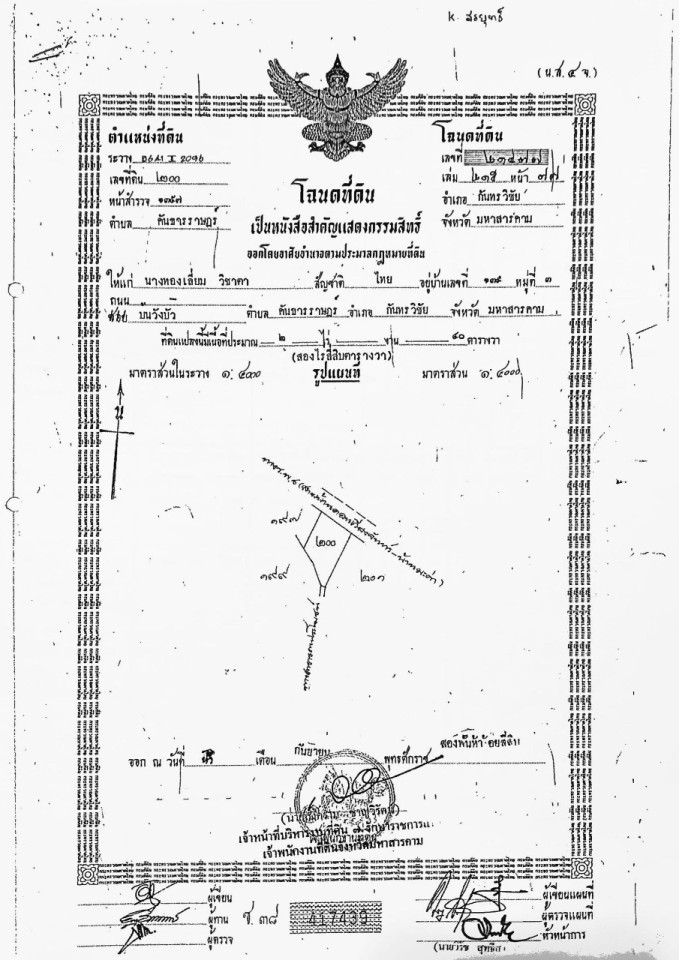 k. สรยุทธ์
(น.ส.๔ จ.)
ตำแหน่งที่ดิน
ระวาง 5641 I 2096
เลขที่ดิน ๒๐๐
หน้าสำรวจ ๑๓๙๓
ตำบล คันธารราษฎร์
โฉนดที่ดิน
เลขที่ ๒๑๔๗๗
เล่ม ๒๑๕ หน้า ๗๗
อำเภอ กันทรวิชัย
จังหวัด มหาสารคาม
โฉนดที่ดิน
เป็นหนังสือสำคัญแสดงกรรมสิทธิ์
ออกโดยอาศัยอำนาจตามประมวลกฎหมายที่ดิน
ให้แก่ นางทองเลี่ยม วิชาคา สัญชาติ ไทย อยู่บ้านเลขที่ ๑๓๙ หมู่ที่ ๓
ถนน
ซอย บ้นวังบัว ตำบล คันธารราษฎร์ อำเภอ กันทรวิชัย จังหวัด มหาสารคาม
ที่ดินแปลงนี้มีเนื้อที่ประมาณ ๒ ไร่ งาน ๔๐ ตารางวา
(สองไร่สี่สิบตารางวา)
มาตราส่วนในระวาง ๑:๔๐๐๐ รูปแผนที่ มาตราส่วน ๑:๔๐๐๐
น
๑๙๗
๒๐๐
๑๙๙
๒๐๑
ทางสาธารณประโยชน์
ออก ณ วันที่ เดือน กันยายน พุทธศักราช สองพันห้าร้อยสี่สิบ
เจ้าหน้าที่บริหารงานที่ดิน ๗ รักษาราชการแทน
เจ้าพนักงานที่ดินจังหวัดมหาสารคาม
ผู้เขียน
ผู้ทาน
ผู้ตรวจ
ช. ๓๘ 417439
ผู้เขียนแผนที่
ผู้ตรวจแผนที่
หัวหน้าการ
(นายวิรัช สุทธิส